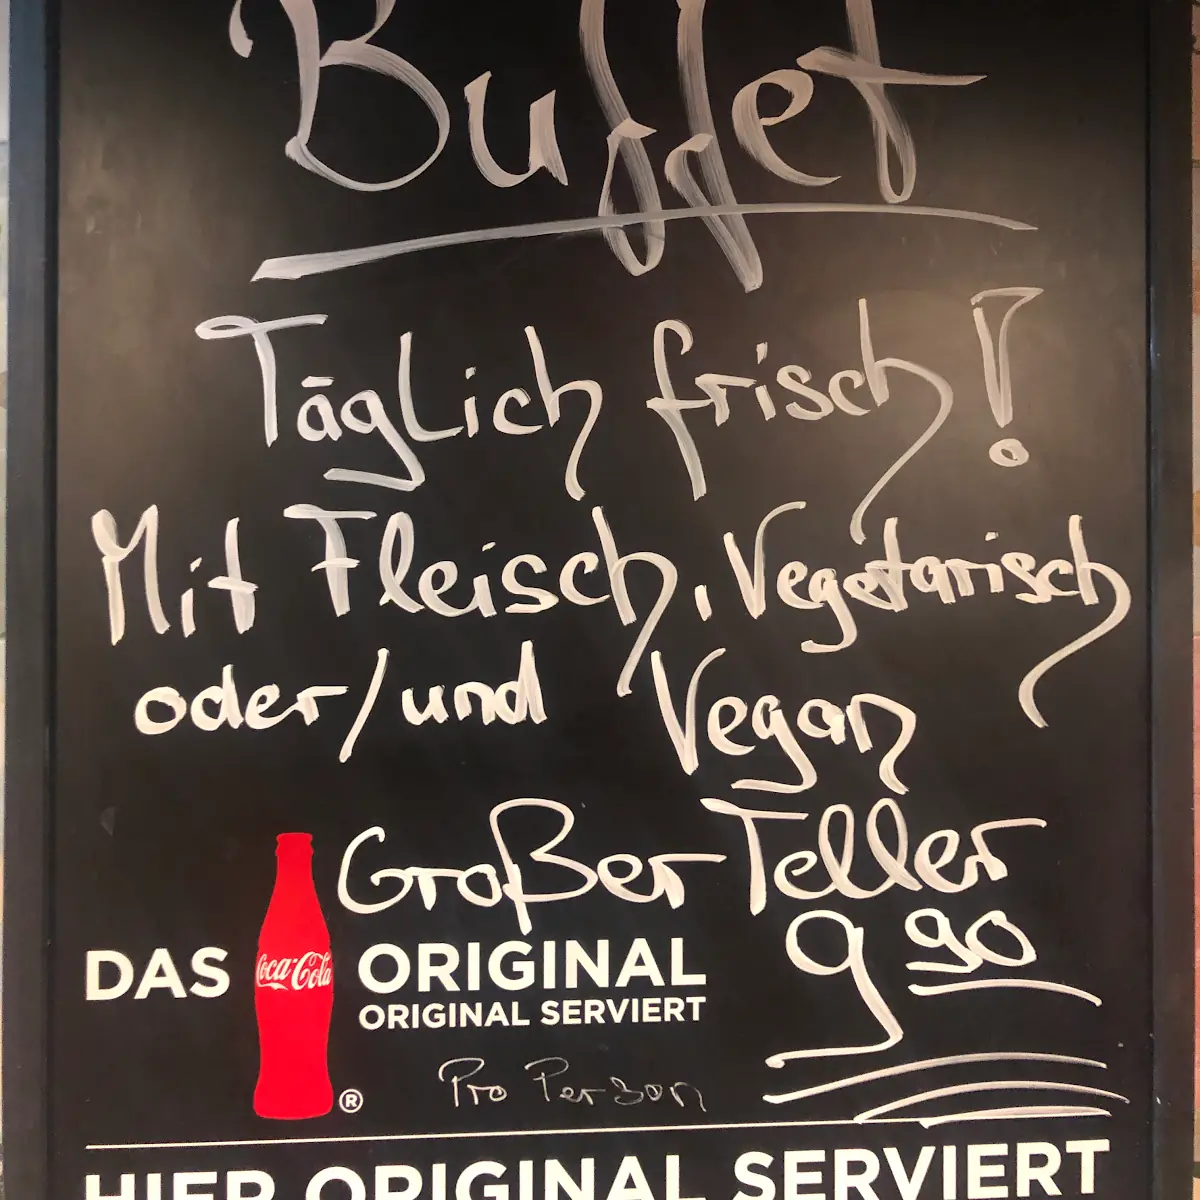 Buffet
Täglich frisch!
Mit Fleisch, Vegetarisch
oder/und Vegan
Großer Teller
9 90
DAS Coca-Cola ORIGINAL
ORIGINAL SERVIERT
®
Pro Person
HIER ORIGINAL SERVIERT